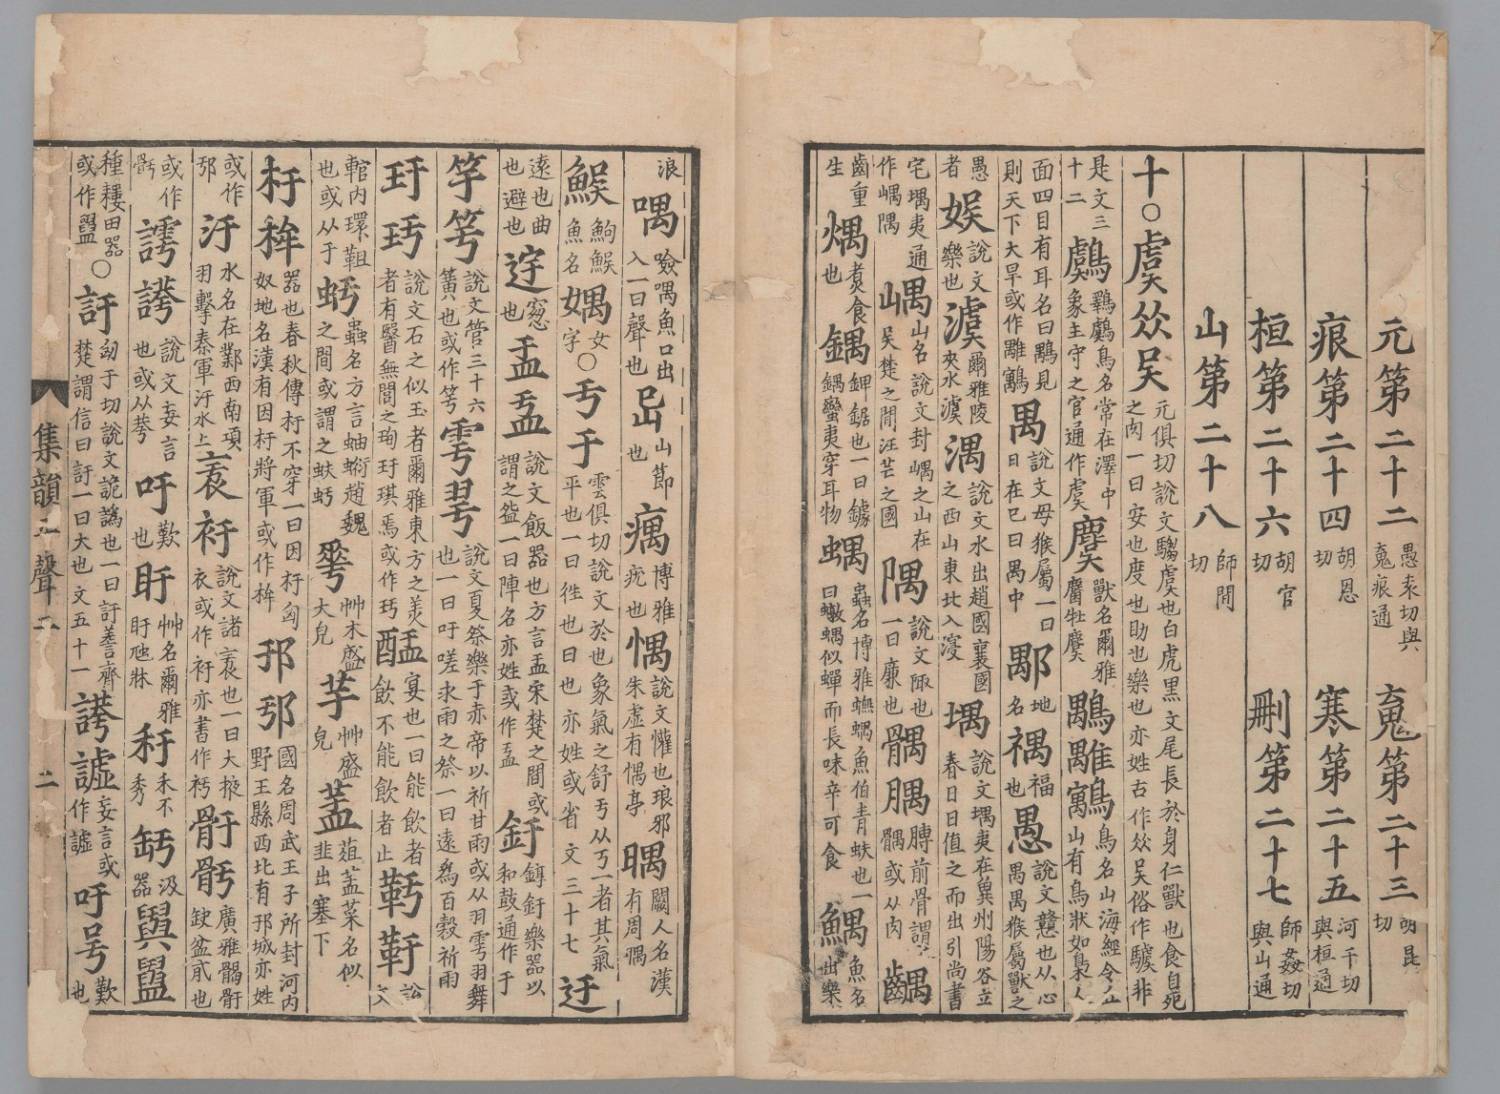 元第二十二愚袁切與䰟痕通 䰟第二十三胡昆切
痕第二十四胡恩切 寒第二十五河干切與桓通
桓第二十六胡官切 刪第二十七師姦切與山通
山第二十八師閒切
十○虞㒭吴元俱切說文騶虞也白虎黑文尾長於身仁獸也食自死之肉一曰安也度也助也樂也亦姓古作㒭吴俗作驉非
是文三十二鸆鷄鸆鳥名常在澤中象主守之官通作虞麌獸名爾雅麕牡麌鸓鸅鳥名山海經令丘山有鳥狀如梟人
面四目有耳名曰鶚見則天下大旱或作雝䳱禺說文母猴屬一曰日在巳曰禺中鄅地名禑福也愚說文戇也从心禺禺猴屬獸之
愚者娛說文樂也澞爾雅陵夾水澞湡說文水出趙國襄國之西山東北入㴆堣說文堣夷在兾州陽谷立春日日值之而出引尚書
宅堣夷通作嵎隅嵎山名說文封嵎之山在吳楚之間汪芒之國隅說文陬也一曰廉也髃腢膊前骨謂髃或从肉齵
齒重生㷒煮食也鍝鉀鋸也一曰鐻鍝蠻夷穿耳物蝺蟲名博雅蟱蝺魚伯青蚨也一曰蝳蝺似蟬而長味辛可食鰅魚名出樂
浪喁噞喁魚口出入一曰聲也㠯山節也㾒博雅疣也愚說文懽也琅邪朱虛有愚亭䁩闕人名漢有周䁩
鯸鮈鯸魚名媀女字○亐于雲俱切說文於也象氣之舒亐从丂一者其氣平也一曰徃也曰也亦姓或省文三十七迂
遠也曲也避也穻窻也盂盓說文飯器也方言盂宋楚之間或謂之盌一曰陣名亦姓或作盓釪錞釪樂器以和鼓通作于
竽䇡說文管三十六簧也或作䇡雩䨒說文夏祭樂于赤帝以祈甘雨或从羽雩羽舞也一曰吁嗟求雨之祭一曰遠爲百穀祈雨
玗㺮說文石之似玉者爾雅東方之美者有醫無閭之珣玗琪焉或作㺮䤁宴也一曰能飲者飲不能飲者止䩒靬說文
輨内環靼也或从于虶蟲名方言蚰蜒趙魏之間或謂之蚨虶𠌶艸木盛大皃芋艸盛皃䓊葅䓊菜名似韭出塞下
杅桙器也春秋傳杅不穿一曰因杅匈奴地名漢有因杅將軍或作桙邘䢴國名周武王子所封河内野王縣西北有邘城亦姓
或作䢴汙水名在鄴西南項羽擊秦軍汙水上衺衧說文諸衺也一曰大掖衣或作衧亦書作袴骬骻廣雅髃骬缺盆䯏也
或作骻謣䛕說文妄言也或从䓊吁歎也盱艸名爾雅盱虺牀秄禾不秀𦈢汲器㽉㽈
種耰田器或作㽈○訏匈于切說文詭譌也一曰訏謩齊楚謂信曰訏一曰大也文五十一䛕謯妄言或作謯吁㝬歎也
集韻平聲二 二